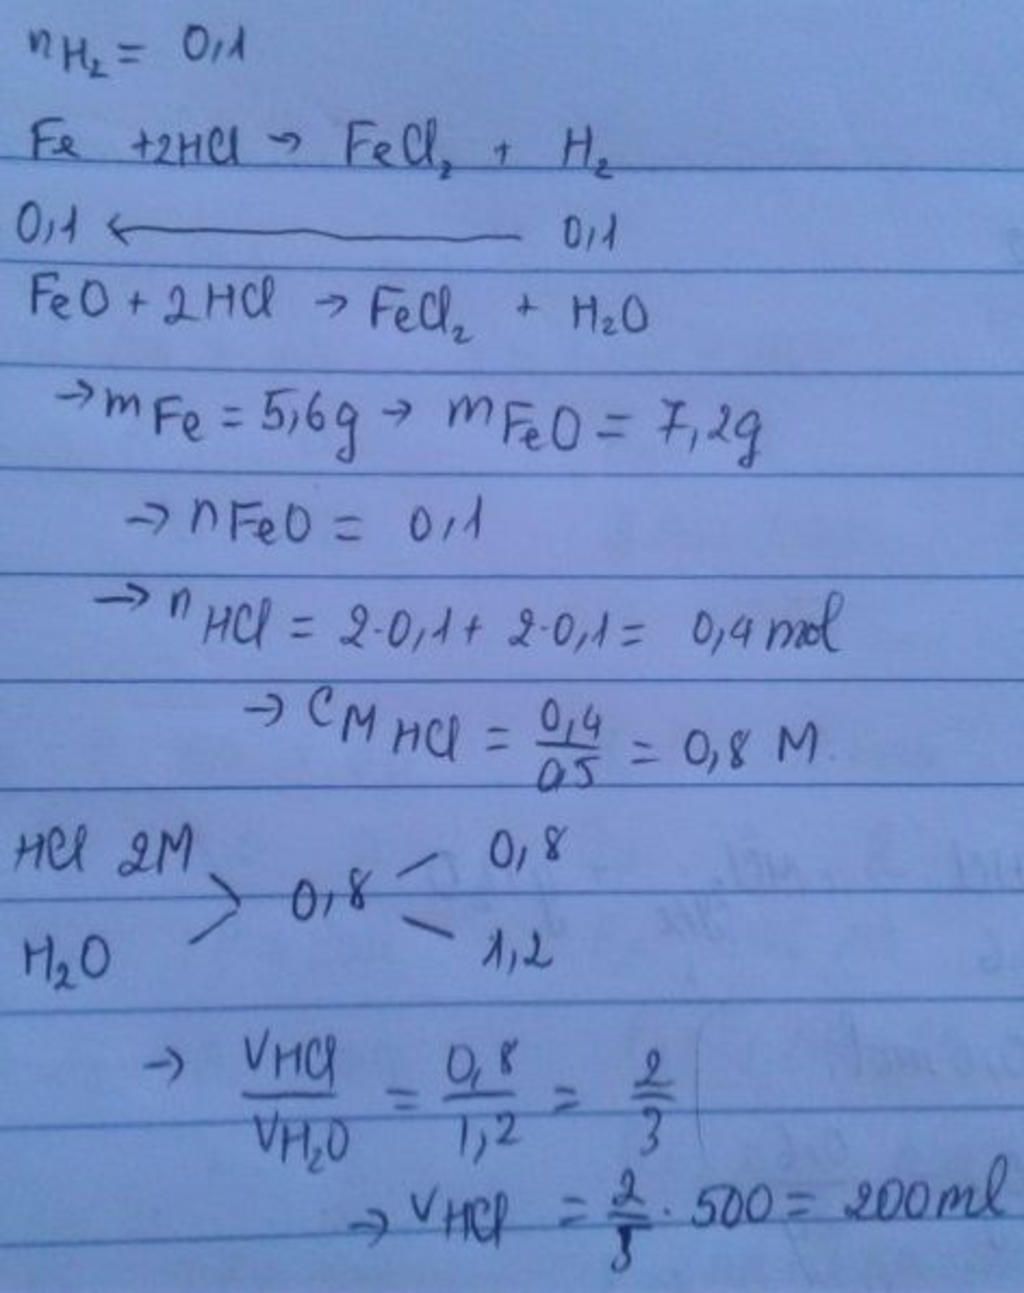 nH₂ = 0,1
Fe +2HCl → FeCl₂ + H₂
0,1 ← 0,1
FeO + 2HCl → FeCl₂ + H₂O
→ mFe = 5,6g → mFeO = 7,2g
→ nFeO = 0,1
→ nHCl = 2·0,1 + 2·0,1 = 0,4 mol
→ CM HCl = 0,4/0,5 = 0,8 M
HCl 2M 0,8
0,8
H₂O 1,2
→ VHCl/VH₂O = 0,8/1,2 = 2/3
→ VHCl = 2/5 · 500 = 200ml